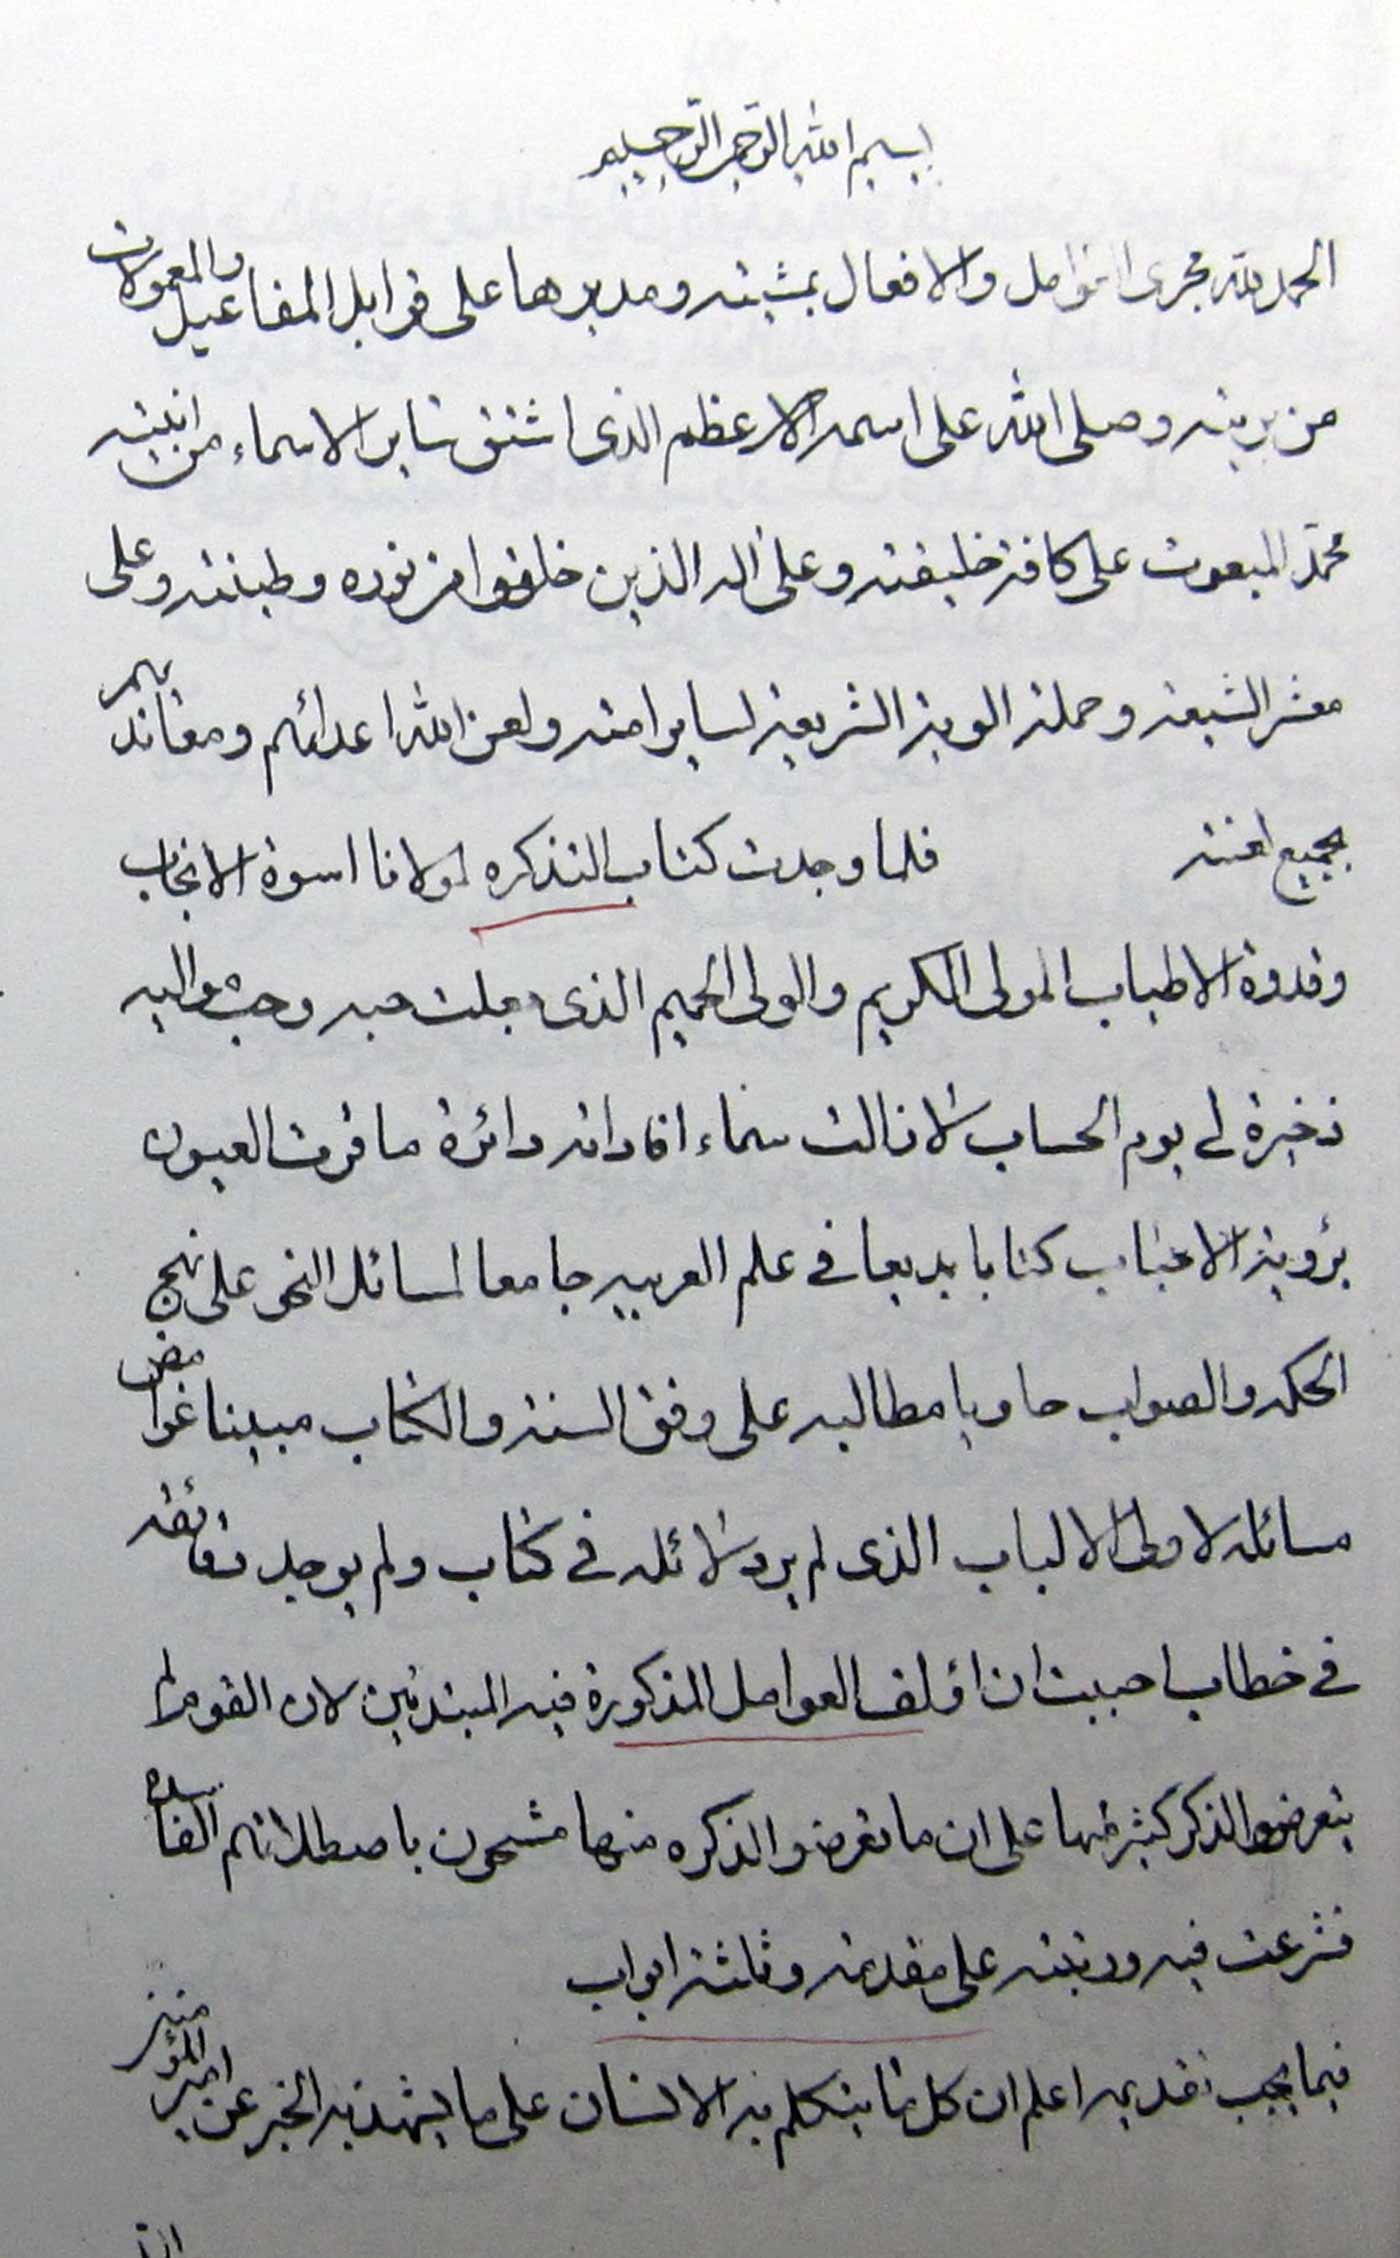 بسم الله الرحمن الرحيم
الحمد لله مجرى العوامل والافعال بمشيته ومديرها على قوابل المفاعيل والمعمولات
من بريته وصلى الله على اسمه الاعظم الذى اشتق ساير الاسماء من ابنيته
محمد المبعوث على كافة خليقته وعلى اله الذين خلقوا من نوره وطينته وعلى
معشر الشيعة وحملة الوية الشريعة لساير امته ولعن الله اعدائهم ومعانديهم
بجميع لعنته فلما وجدت كتاب التذكره لمولانا اسوة الانجاب
وقدوة الاطياب المولى الكريم والولى الحميم الذى جعلت حبه وحب مواليه
ذخيرة لى يوم الحساب لا زالت سماء افاداته دائرة ما قرت العيون
برؤية الاحباب كتابا بديعا فى علم العربيه جامعا لمسائل النحو على نهج
الحكمه والصواب حاويا مطالبه على وفق السنة والكتاب مبينا غوامض
مسائله لاولى الالباب الذى لم يرد دلائله فى كتاب ولم يوجد دقائقه
فى خطاب احببت ان اؤلف العوامل المذكورة فيه للمبتدئين لان القوم لم
يتعرضوا لذكر كثير منها على ان ما تعرضوا لذكره منها مشحون باصطلاحاتهم الفاسده
فشرعت فيه ورتبته على مقدمة وثلثة ابواب
فيما يجب تقديمه اعلم ان كل ما يتكلم به الانسان على ما يشهد به الخبر عن امير المؤمنين